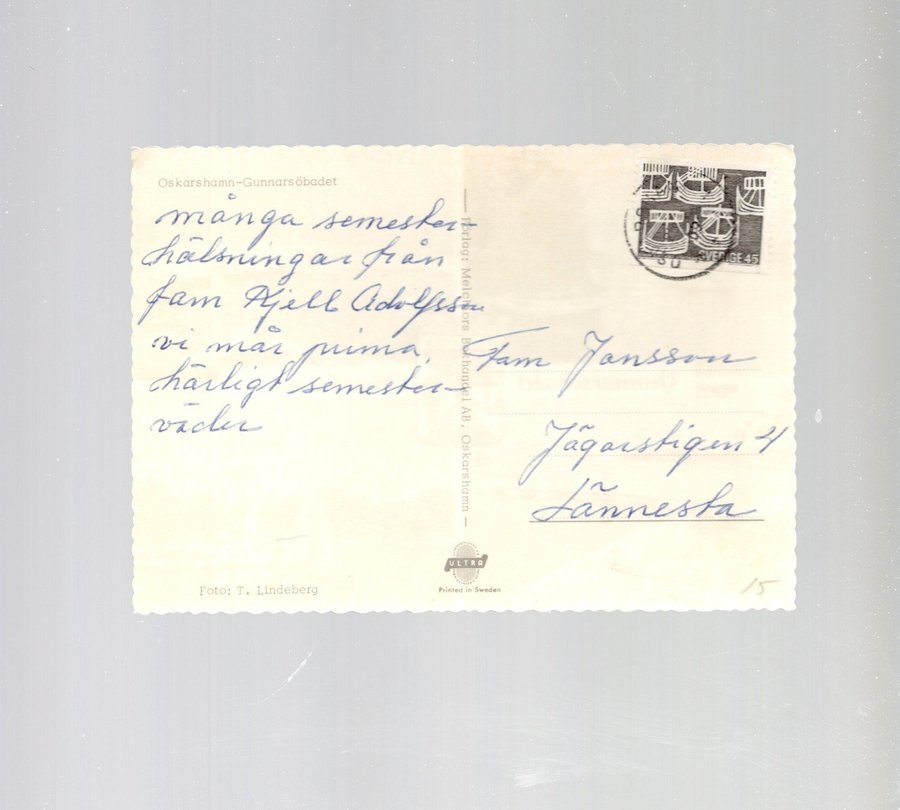 Oskarshamn-Gunnarsöbadet
många semester-
hälsningar från
fam Kjell Adolfsson
vi mår prima,
härligt semester-
väder
Förlag: Melchiors Bokhandel AB, Oskarshamn
SVERIGE 45
Fam Jansson
Jägarstigen 4
Lännesta
ULTRA
Printed in Sweden
Foto: T. Lindeberg
15